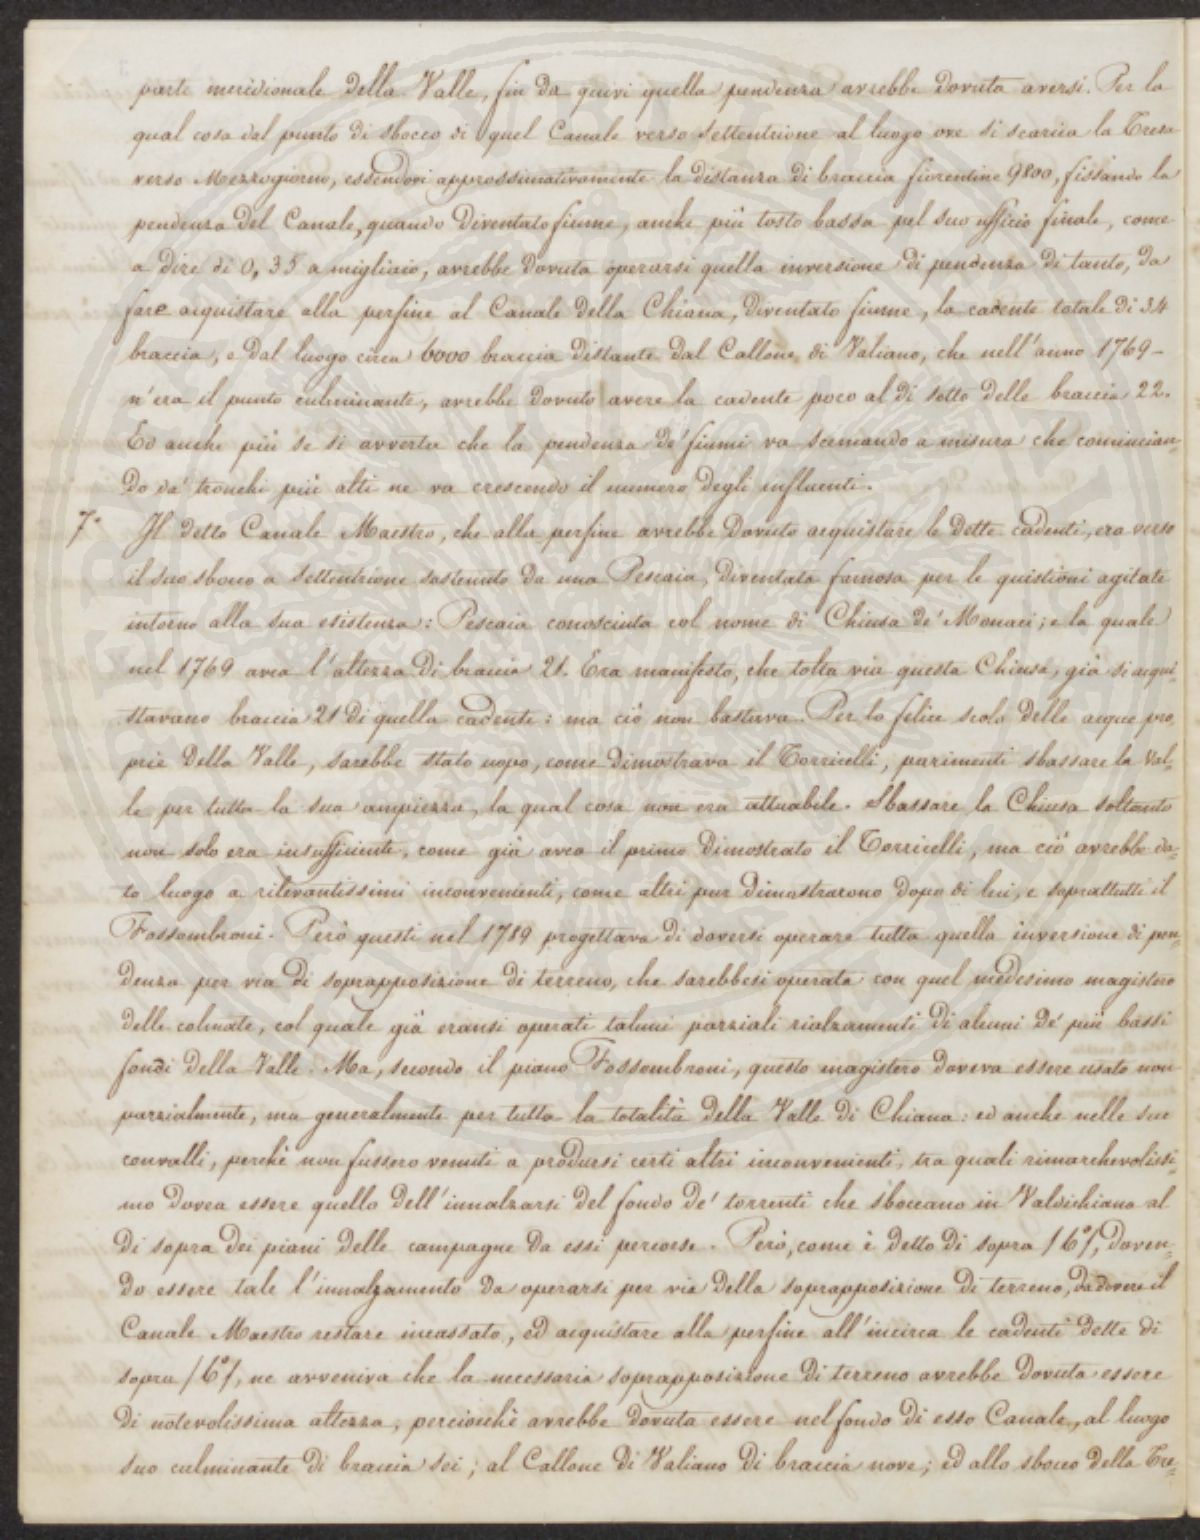 parte meridionale della Valle, fin da quivi quella pendenza avrebbe dovuta aversi. Per la
qual cosa dal punto di sbocco di quel Canale verso Settentrione al luogo ove si scarica la Tresa
verso Mezzogiorno, essendovi approssimativamente la distanza di braccia fiorentine 9800, fissando la
pendenza del Canale, quando diventato fiume, anche più tosto bassa pel suo ufficio finale, come
a dire di 0,35 a migliaio, avrebbe dovuta operarsi quella inversione di pendenza di tanto, da
fare acquistare alla perfine al Canale della Chiana, diventato fiume, la cadente totale di 34
braccia, e dal luogo circa 6000 braccia distante dal Callone di Valiano, che nell'anno 1769-
n'era il punto culminante, avrebbe dovuto avere la cadente poco al di sotto delle braccia 22.
Ed anche più se si avverta che la pendenza de' fiumi va scemando a misura che comincian-
do da' tronchi più alti ne va crescendo il numero degli influenti.
7.° Il detto Canale Maestro, che alla perfine avrebbe dovuto acquistare le dette cadenti, era verso
il suo sbocco a Settentrione sostenuto da una Pescaia, diventata famosa per le quistioni agitate
intorno alla sua esistenza: Pescaia conosciuta col nome di Chiusa de' Monaci; e la quale
nel 1769 avea l'altezza di braccia 21. Era manifesto, che tolta via questa Chiusa, già si acqui-
stavano braccia 21 di quella cadente: ma ciò non bastava. Per lo felice scolo delle acque pro-
prie della Valle, sarebbe stato uopo, come dimostrava il Torricelli, parimenti sbassare la Val-
le per tutta la sua ampiezza, la qual cosa non era attuabile. Sbassare la Chiusa soltanto
non solo era insufficiente, come già avea il primo dimostrato il Torricelli, ma ciò avrebbe da-
to luogo a rilevantissimi inconvenienti, come altri pur dimostrarono dopo di lui, e soprattutti il
Fossombroni. Però questi nel 1789 progettava di doversi operare tutta quella inversione di pen-
denza per via di soprapposizione di terreno, che sarebbesi operata con quel medesimo magistero
delle colmate, col quale già eransi operati taluni parziali rialzamenti di alcuni de' più bassi
fondi della Valle. Ma, secondo il piano Fossombroni, questo magistero doveva essere usato non
parzialmente, ma generalmente per tutta la totalità della Valle di Chiana: ed anche nelle sue
convalli, perché non fussero venuti a prodursi certi altri inconvenienti, tra quali rimarchevolissi-
mo dovea essere quello dell'innalzarsi del fondo de' torrenti che sboccano in Valdichiana al
di sopra dei piani delle campagne da essi percorse. Però, come è detto di sopra /6°/, doven-
do essere tale l'innalzamento da operarsi per via della soprapposizione di terreno, da dovere il
Canale Maestro restare incassato, ed acquistare alla perfine all'incirca le cadenti dette di
sopra /6°/, ne avveniva che la necessaria soprapposizione di terreno avrebbe dovuta essere
di notevolissima altezza, perciocchè avrebbe dovuta essere nel fondo di esso Canale, al luogo
suo culminante di braccia sei; al Callone di Valiano di braccia nove; ed allo sbocco della Tre-